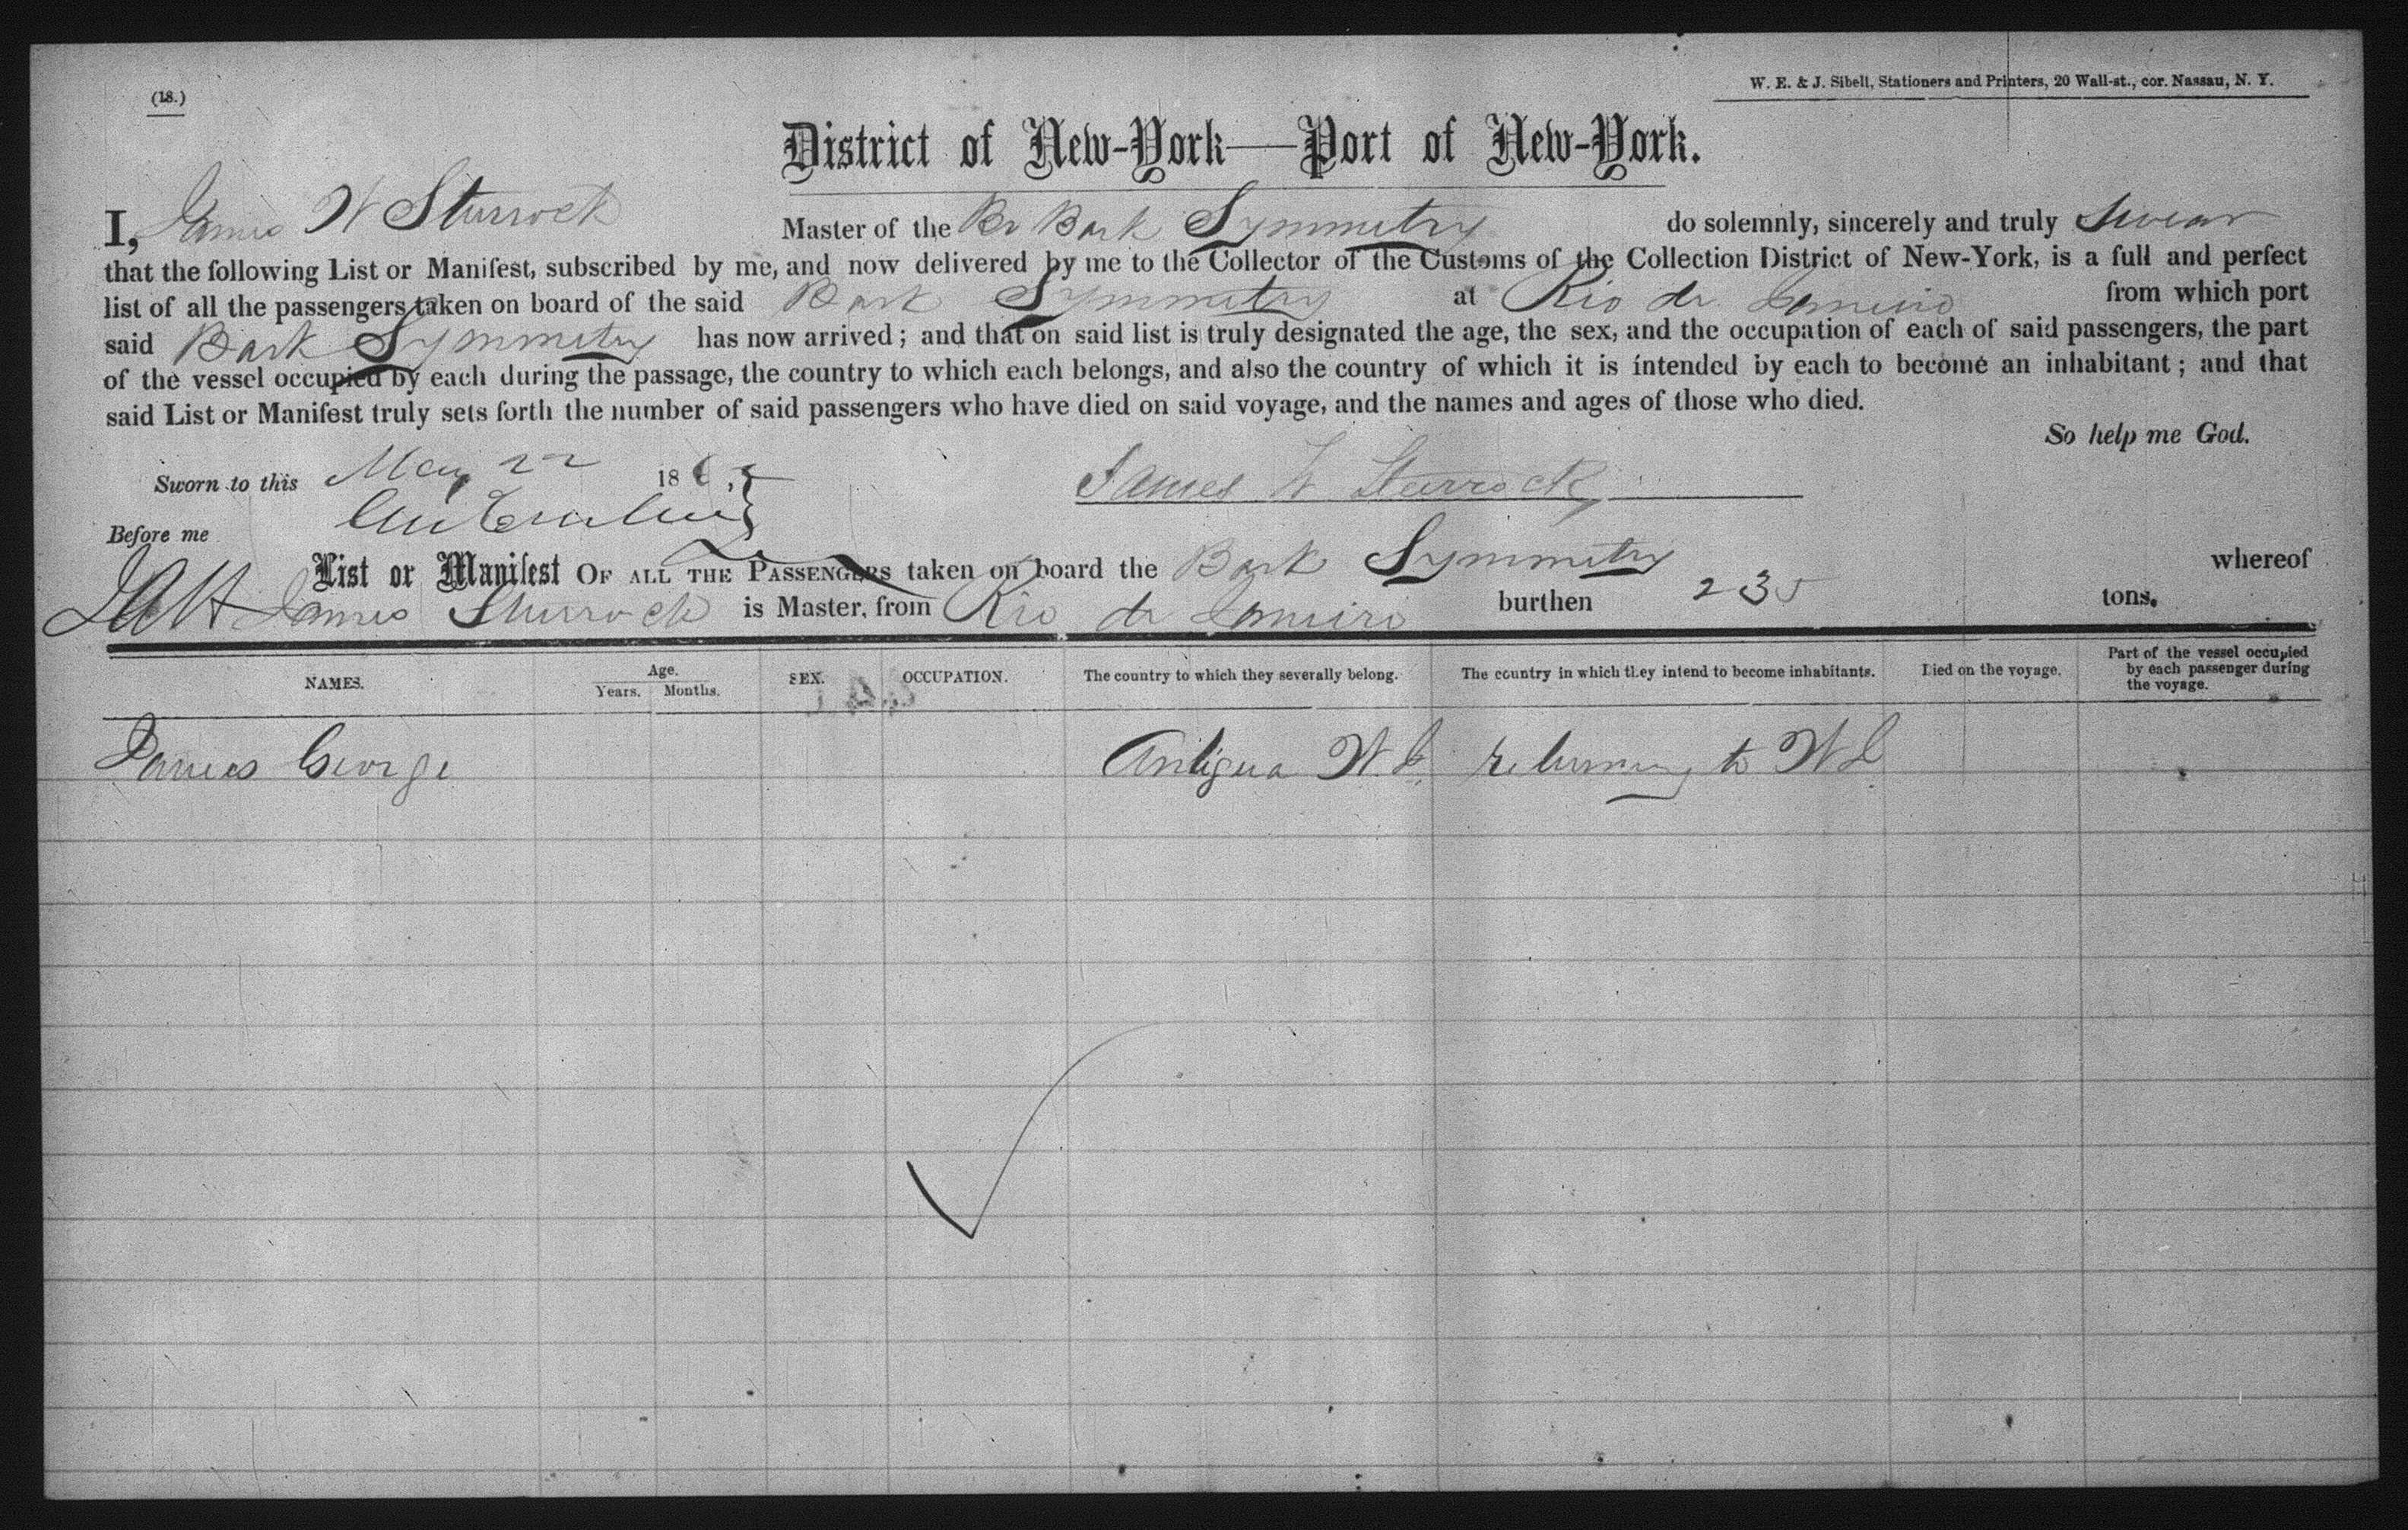 (18.)
W. E. & J. Sibell, Stationers and Printers, 20 Wall-st., cor. Nassau, N. Y.
District of New-York—Port of New-York.
I, James W Sturrock Master of the Br Bark Symmetry do solemnly, sincerely and truly swear
that the following List or Manifest, subscribed by me, and now delivered by me to the Collector of the Customs of the Collection District of New-York, is a full and perfect
list of all the passengers taken on board of the said Bark Symmetry at Rio de Janeiro from which port
said Bark Symmetry has now arrived; and that on said list is truly designated the age, the sex, and the occupation of each of said passengers, the part
of the vessel occupied by each during the passage, the country to which each belongs, and also the country of which it is intended by each to become an inhabitant; and that
said List or Manifest truly sets forth the number of said passengers who have died on said voyage, and the names and ages of those who died.
So help me God.
Sworn to this May 22 186
James W Sturrock
Before me
List or Manifest OF ALL THE PASSENGERS taken on board the Bark Symmetry whereof
James Sturrock is Master, from Rio de Janeiro burthen 235 tons.
NAMES. Age. Years. Months. SEX. OCCUPATION. The country to which they severally belong. The country in which they intend to become inhabitants. Died on the voyage. Part of the vessel occupied by each passenger during the voyage.
James George Antigua W.I. returning to W I